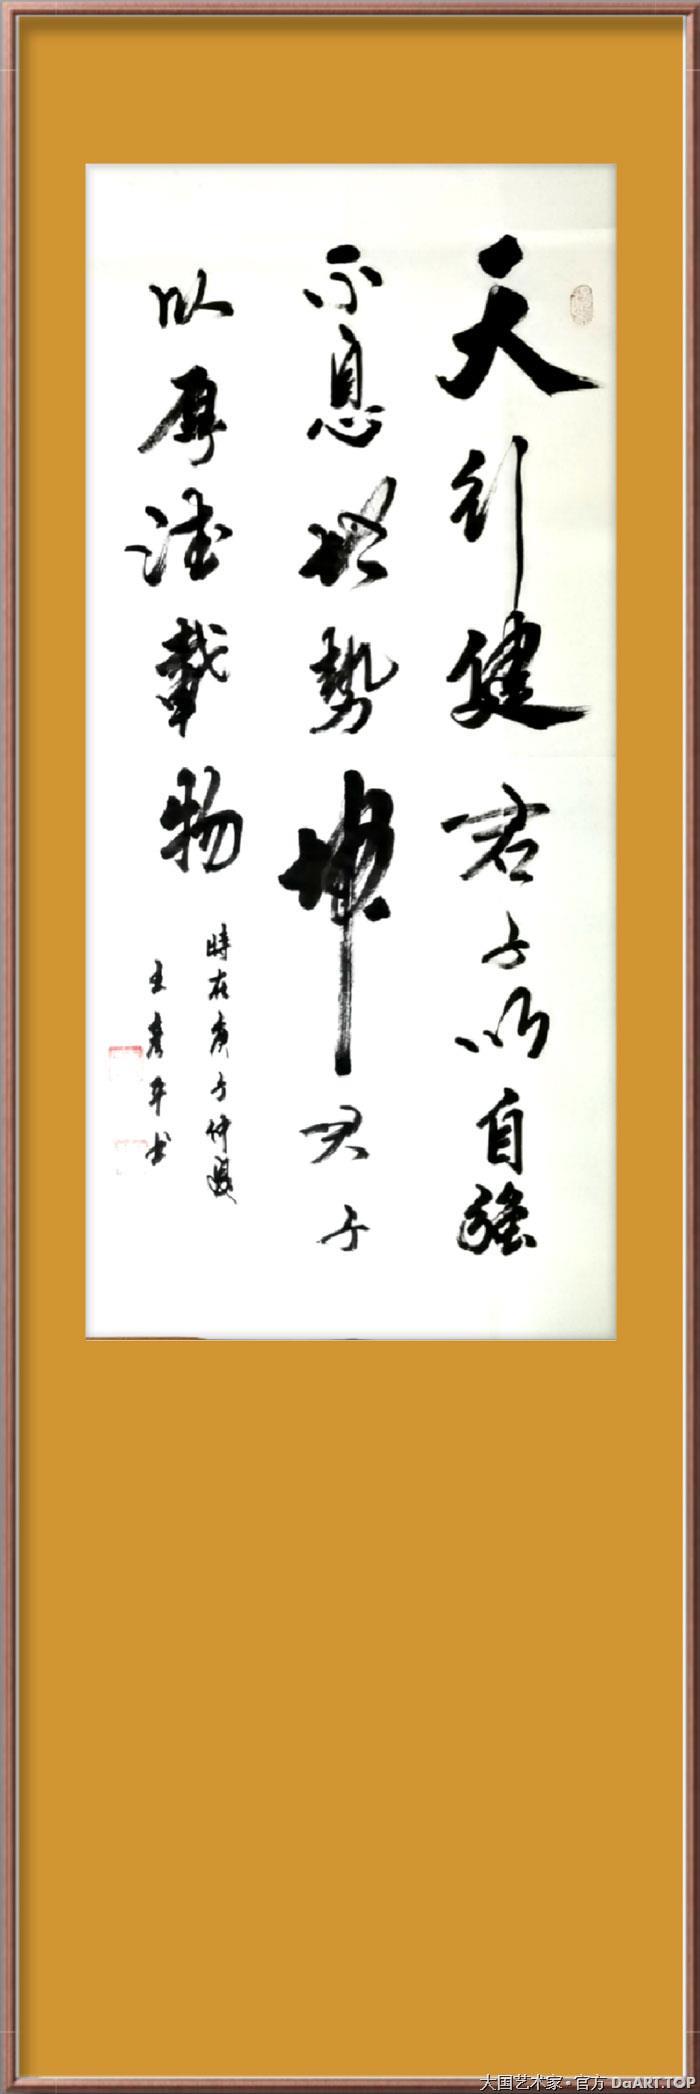 天行健君子以自強
不息地勢坤君子
以厚德載物
時在庚子仲夏
王彦书
大国艺术家·官方 DaART.TOP